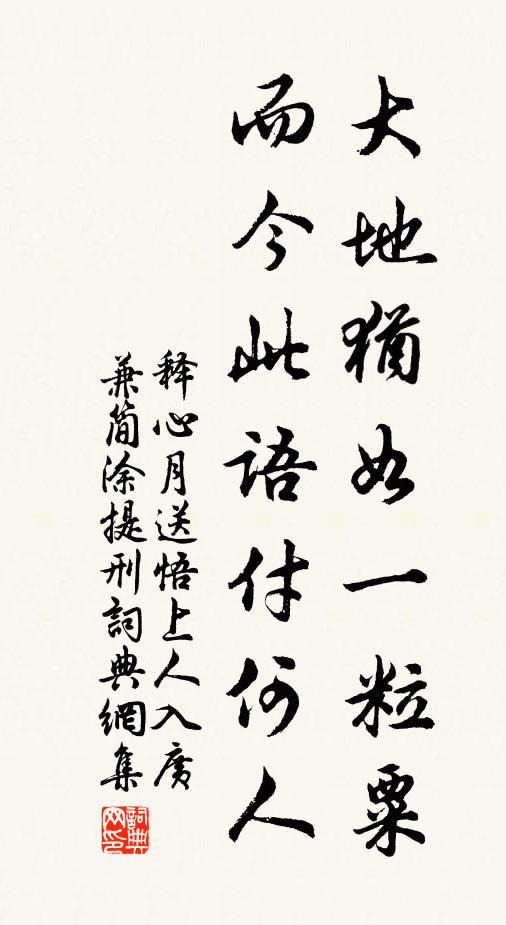 大地猶如一粒粟
而今此語付何人
释心月送悟上人入廣
兼简涂提刑詞典網集
詞典网印